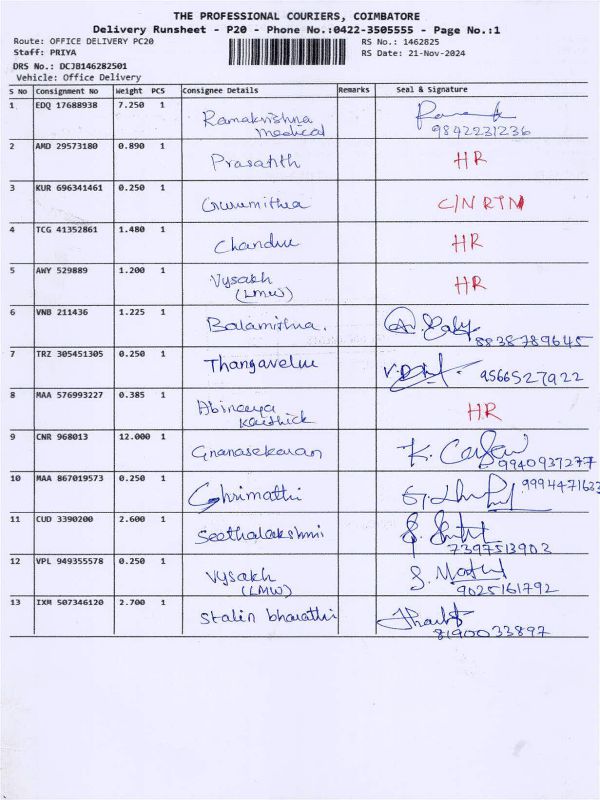 THE PROFESSIONAL COURIERS, COIMBATORE
Delivery Runsheet - P20 - Phone No.:0422-3505555 - Page No.:1
Route: OFFICE DELIVERY PC20 RS No.: 1462825
Staff: PRIYA RS Date: 21-Nov-2024
DRS No.: DCJB146282501
Vehicle: Office Delivery
S No Consignment No Weight PCS Consignee Details Remarks Seal & Signature
1 EDQ 17688938 7.250 1 Ramakrishna
Medical 9842231236
2 AMD 29573180 0.890 1 Prasanth HR
3 KUR 696341461 0.250 1 Gurumithra C/N RTN
4 TCG 41352861 1.480 1 Chandru HR
5 AWY 529889 1.200 1 Vysakh HR
(LMW)
6 VNB 211436 1.225 1 Balamithna. 8838789645
7 TRZ 305451305 0.250 1 Thangavelu 9566527922
8 MAA 576993227 0.385 1 Abinaya HR
Karthick
9 CNR 968013 12.000 1 Gnanasekaran 9940937277
10 MAA 867019573 0.250 1 Ghrimathi 9994471633
11 CUD 3390200 2.600 1 Seethalakshmi 7397513903
12 VPL 949355578 0.250 1 Vysakh
(LMW) 9025161792
13 IXM 507346120 2.700 1 Stalin bharathi 8190033897